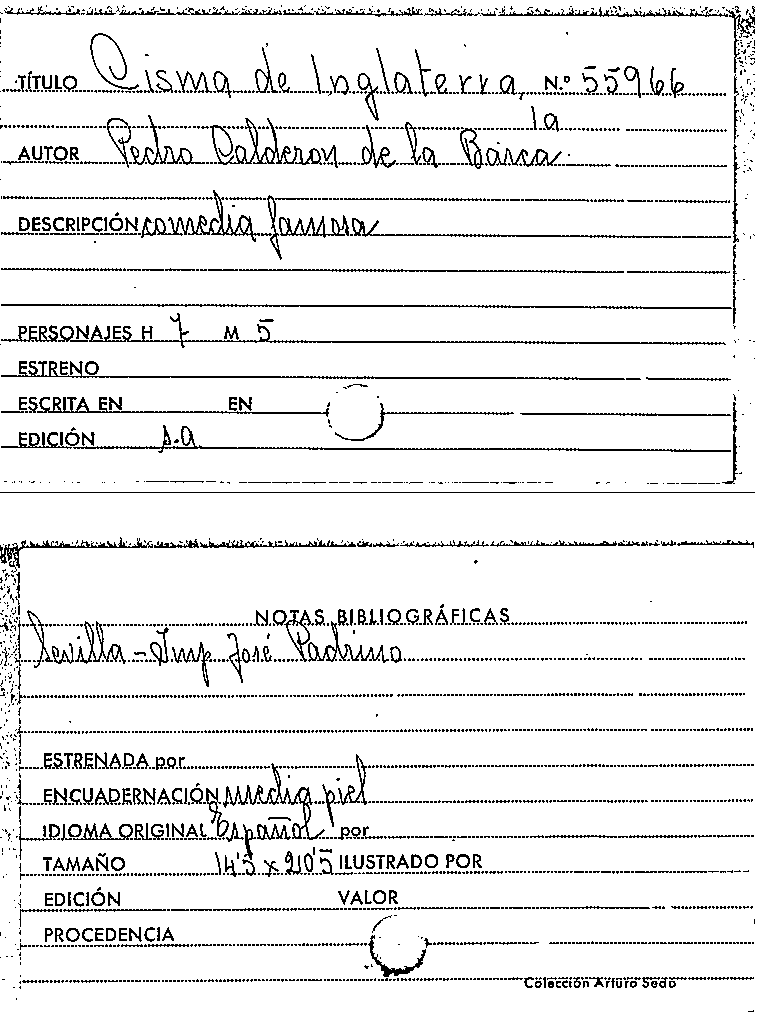 TÍTULO Cisma de Inglaterra, N.º 55966
la
AUTOR Pedro Calderon de la Barca.
DESCRIPCIÓN comedia famosa
PERSONAJES H 7 M 5
ESTRENO
ESCRITA EN EN
EDICIÓN s.a
NOTAS BIBLIOGRÁFICAS
Sevilla - Imp José Padrino
ESTRENADA por
ENCUADERNACIÓN media piel
IDIOMA ORIGINAL Español por
TAMAÑO 14'5 x 20'5 ILUSTRADO POR
EDICIÓN VALOR
PROCEDENCIA
Colección Arturo Sedo